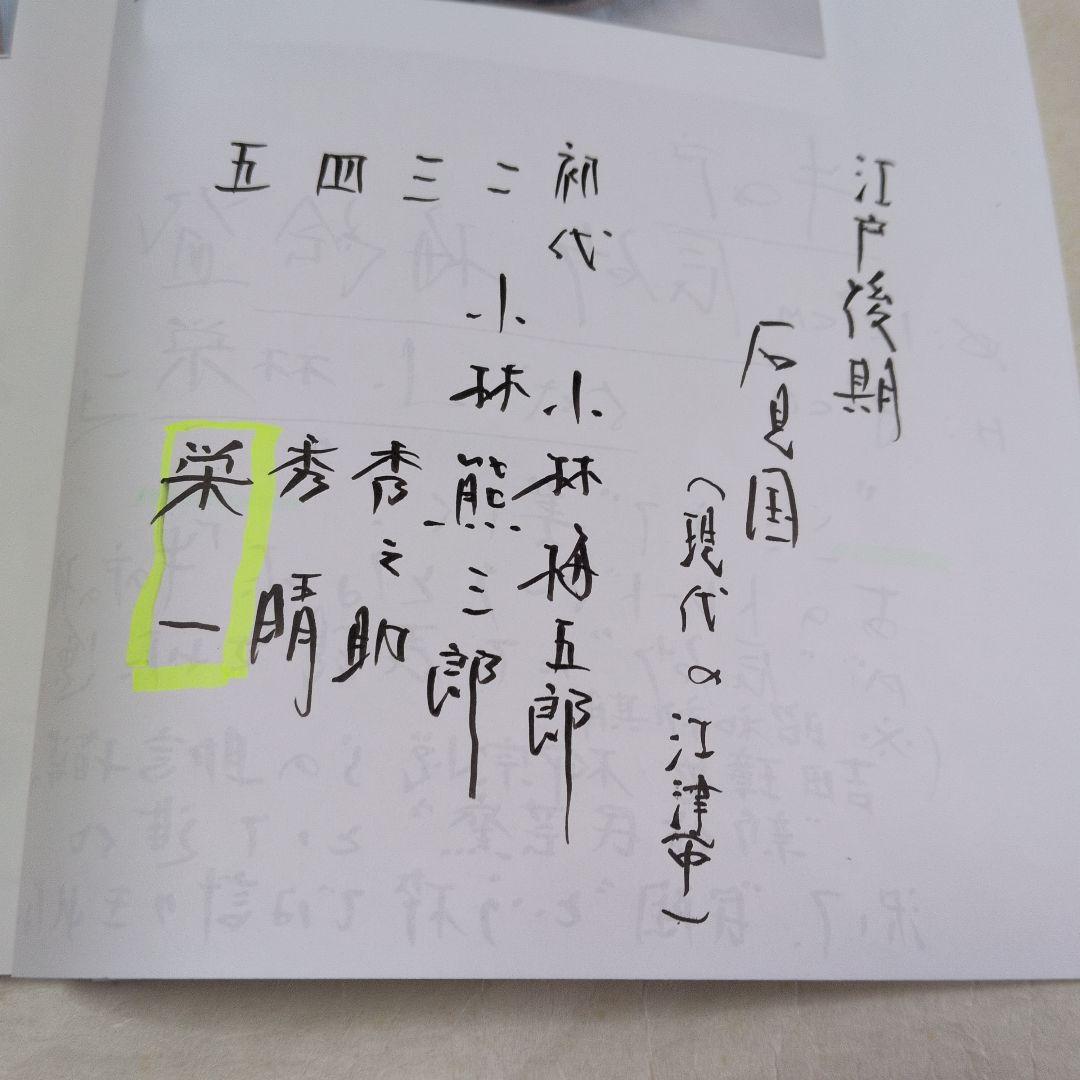 江戸後期
石見国
（現代の江津市）
初代 小林梅五郎
二 小林熊三郎
三 秀之助
四 秀晴
五 栄一